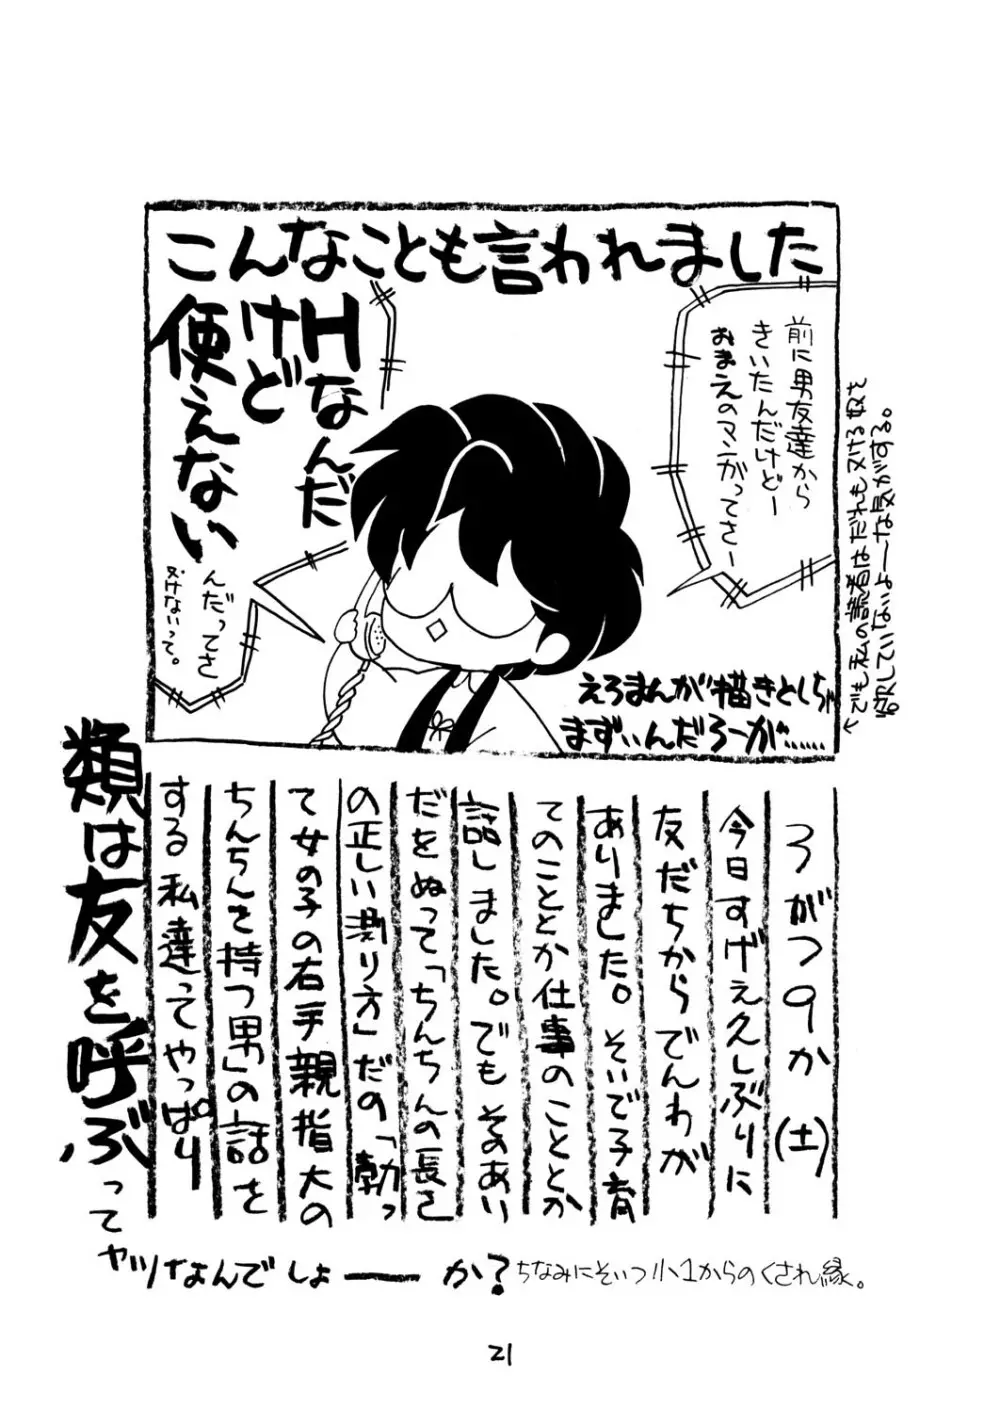 こんなことも言われました
前に男友達から
きいたんだけどー
おまえのマンガってさー
Hなんだ
けど
使えない
んだってさ
ヌけないって。
えろまんが描きとしちゃ
まずいんだろーが……
←でも私の読者はだれもヌける奴を
欲していないよーな気がする。
3がつ9か(土)
今日すげえ久しぶりに
友だちからでんわが
ありました。そいで子育
てのこととか仕事のこととか
話しました。でもそのあい
だをぬって「ちんちんの長さ
の正しい測り方」だの「勃っ
て女の子の右手親指大の
ちんちんを持つ男」の話を
する私達ってやっぱり
類は友を呼ぶって
ヤツなんでしょーか?
ちなみにそいつ小1からのくされ縁。
21